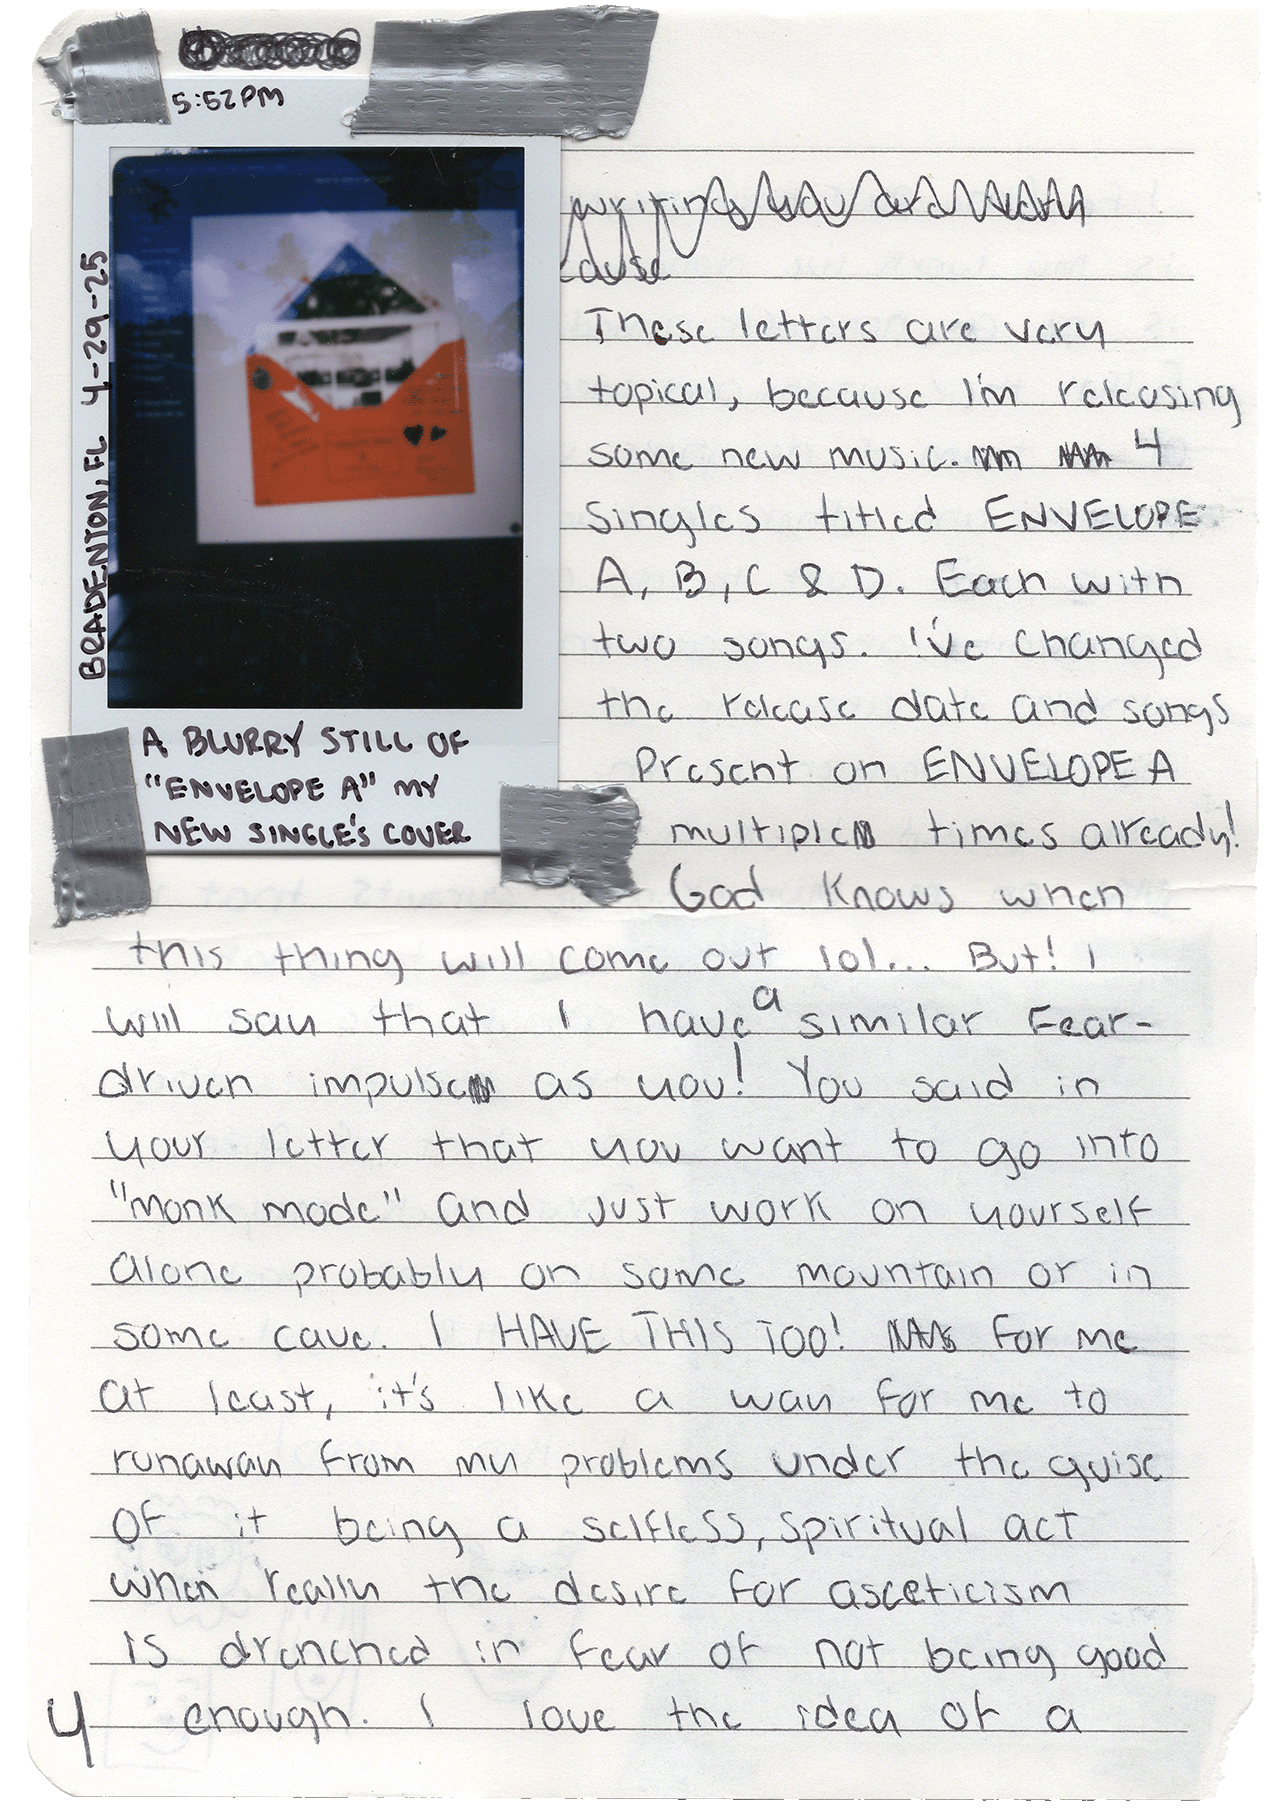 5:52PM
BRADENTON, FL 4-29-25
A BLURRY STILL OF
"ENVELOPE A" MY
NEW SINGLE'S COVER
writing you and
cause
These letters are very
topical, because I'm releasing
some new music. 4
singles titled ENVELOPE
A, B, C & D. Each with
two songs. I've changed
the release date and songs
present on ENVELOPE A
multiple times already!
God knows when
this thing will come out lol... But! I
will say that I have a similar fear-
driven impulse as you! You said in
your letter that you want to go into
"monk mode" and just work on yourself
alone probably on some mountain or in
some cave. I HAVE THIS TOO! For me
at least, it's like a way for me to
runaway from my problems under the guise
of it being a selfless, spiritual act
when really the desire for asceticism
is drenched in fear of not being good
4 enough. I love the idea of a